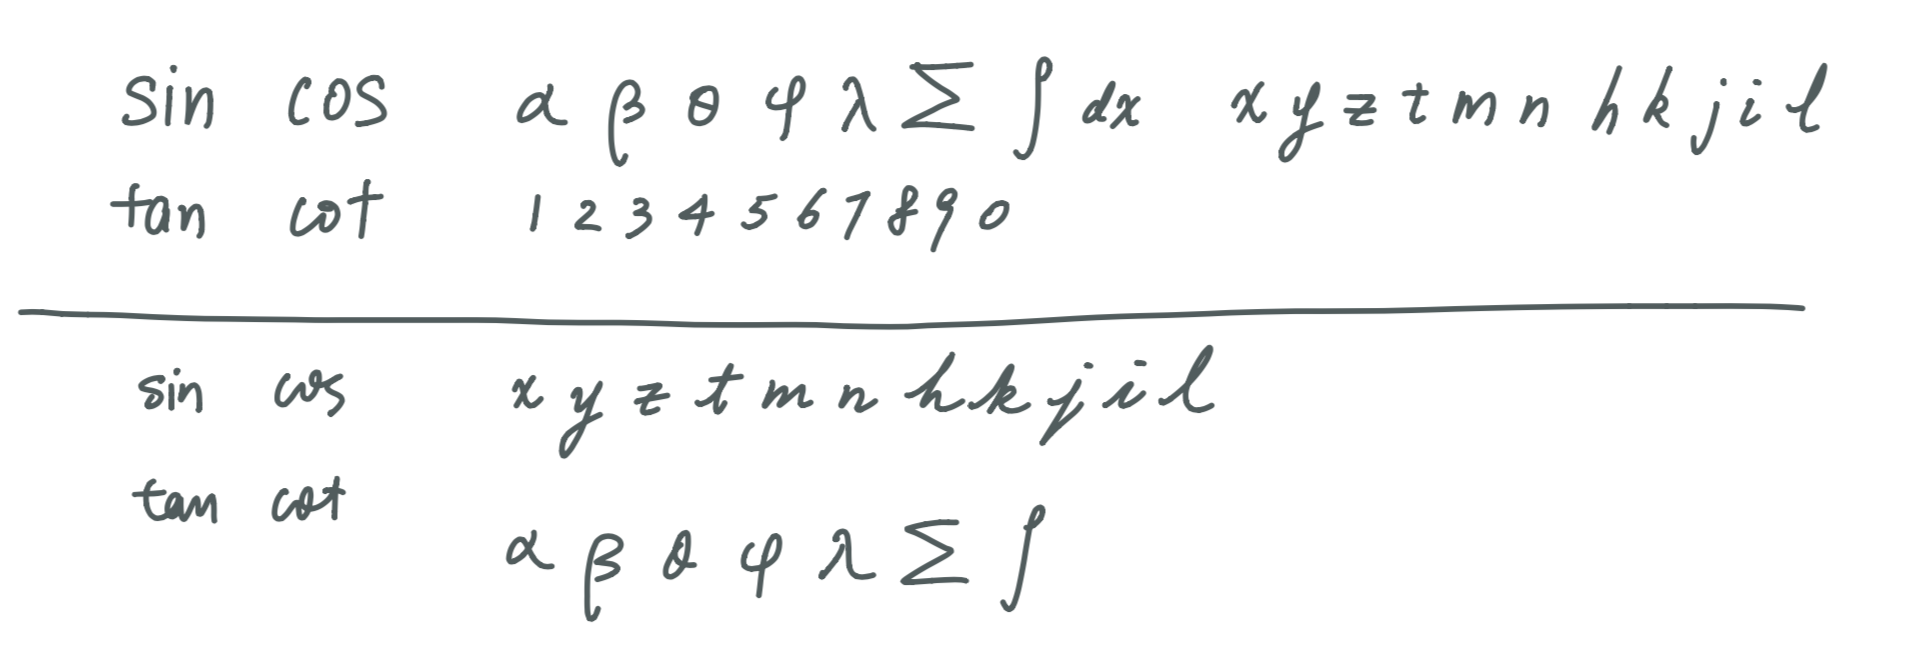 sin cos α β θ φ λ Σ ∫ dx x y z t m n h k j i l
tan cot 1 2 3 4 5 6 7 8 9 0
sin cos x y z t m n h k j i l
tan cot
α β θ φ λ Σ ∫